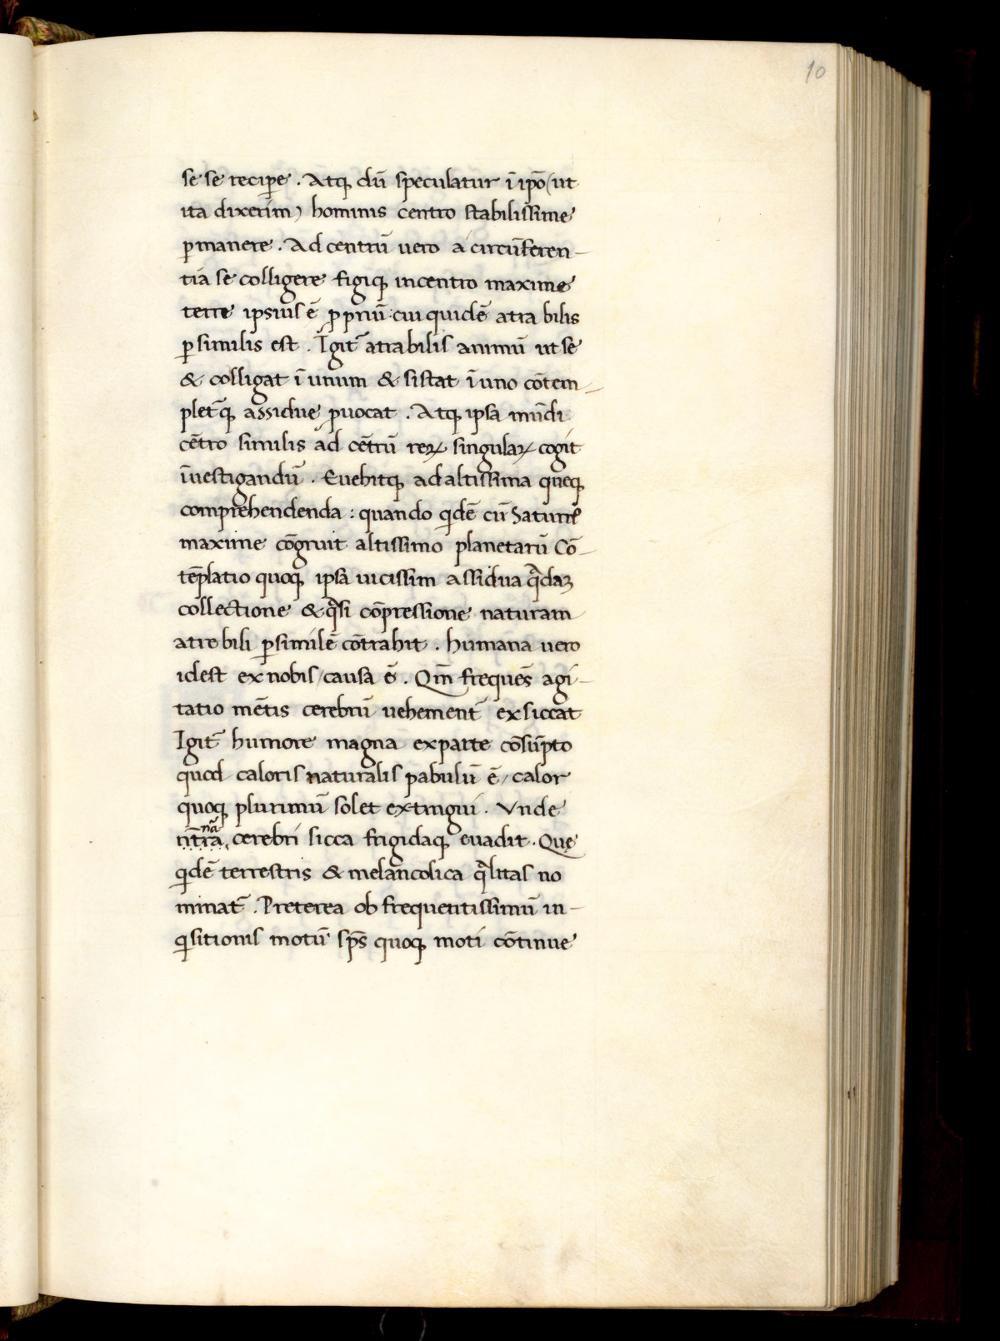 10
se se recip̲e . Atq̲ dū speculatur ī ip̄o (ut
ita dixerim) hominis centro stabilissime
p̲manere . Ad centrū vero a circūferen-
tia se colligere figiq̲ in centro maxime
terre ipsius ē p̲priū : cui quidē atra bilis
p̲similis est . Igit̄ atrabilis animū ut se
& colligat ī unum & sistat ī uno cōtem-
plet̄q̲ assidue p̲uocat . Atq̲ ipsa mūdi
cētro similis ad cētrū reꝝ singulaꝝ cogit
īuestigandū . Euehitq̲ ad altissima queq̲
comprehendenda : quando q̇dē cū Saturno
maxime cōgruit altissimo planetarū Cō-
tēplatio quoq̲ ipsa uicissim assidua q̄daꝫ
collectione & q̄si cōpressione naturam
atre bili p̲similē cōtrahit . humana uero
idest ex nobis / causa ē . Qm̄ frequēs agi-
tatio mētis cerebrū uehement̄ exsiccat
Igit̄ humore magna ex parte cōsūpto
quod caloris naturalis pabulū ē / calor
quoq̲ plurimū solet extingui . Vnde
nā
nt̄ra cerebri sicca frigidaq̲ euadit . Que
q̇dē terrestris & melancolica q̄litas no
minat̄ . Preterea ob frequentissimū in-
q̇sitionis motū sp̄s quoq̲ moti cōtinue